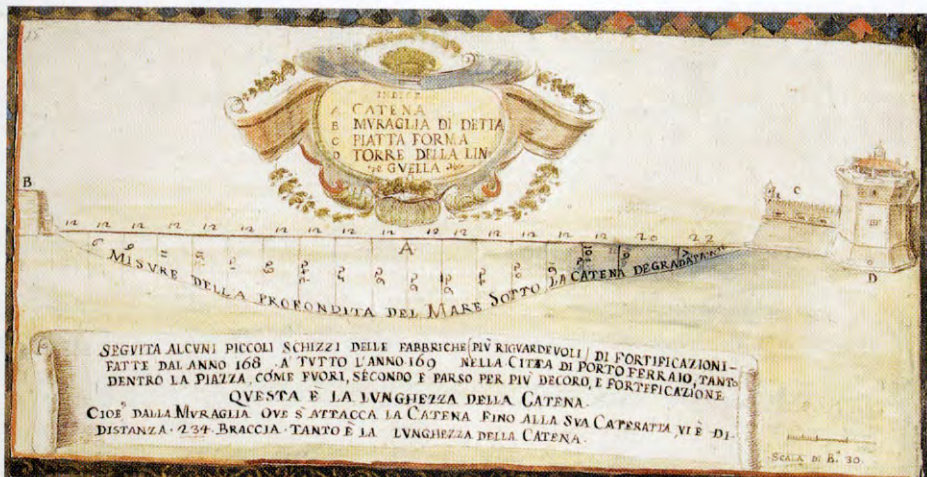 15
INDICE
A CATENA
B MVRAGLIA DI DETTA
C PIATTA FORMA
D TORRE DELLA LIN
GVELLA
B
C
12 12 12 12 12 12 12 12 12 12 12 12 12 20 22
A
D
MISVRE DELLA PROFONDITA DEL MARE SOTTO LA CATENA DEGRADATA
SEGVITA ALCVNI PICCOLI SCHIZZI DELLE FABBRICHE (PIÙ RIGVARDEVOLI) DI FORTIFICAZIONI-
FATTE DAL ANNO 168 . A' TVTTO L'ANNO 169 NELLA CITTÀ DI PORTO FERRAIO, TANTO
DENTRO LA PIAZZA, COME FVORI, SECONDO E PARSO PER PIÙ DECORO, E FORTEFICAZIONE
QVESTA È LA LVNGHEZZA DELLA CATENA.
CIOE' DALLA MVRAGLIA OVE S'ATTACCA LA CATENA FINO ALLA SVA CATERATTA, VI È DI-
DISTANZA . 234. BRACCIA . TANTO È LA LVNGHEZZA DELLA CATENA .
SCALA DI B.a 30.